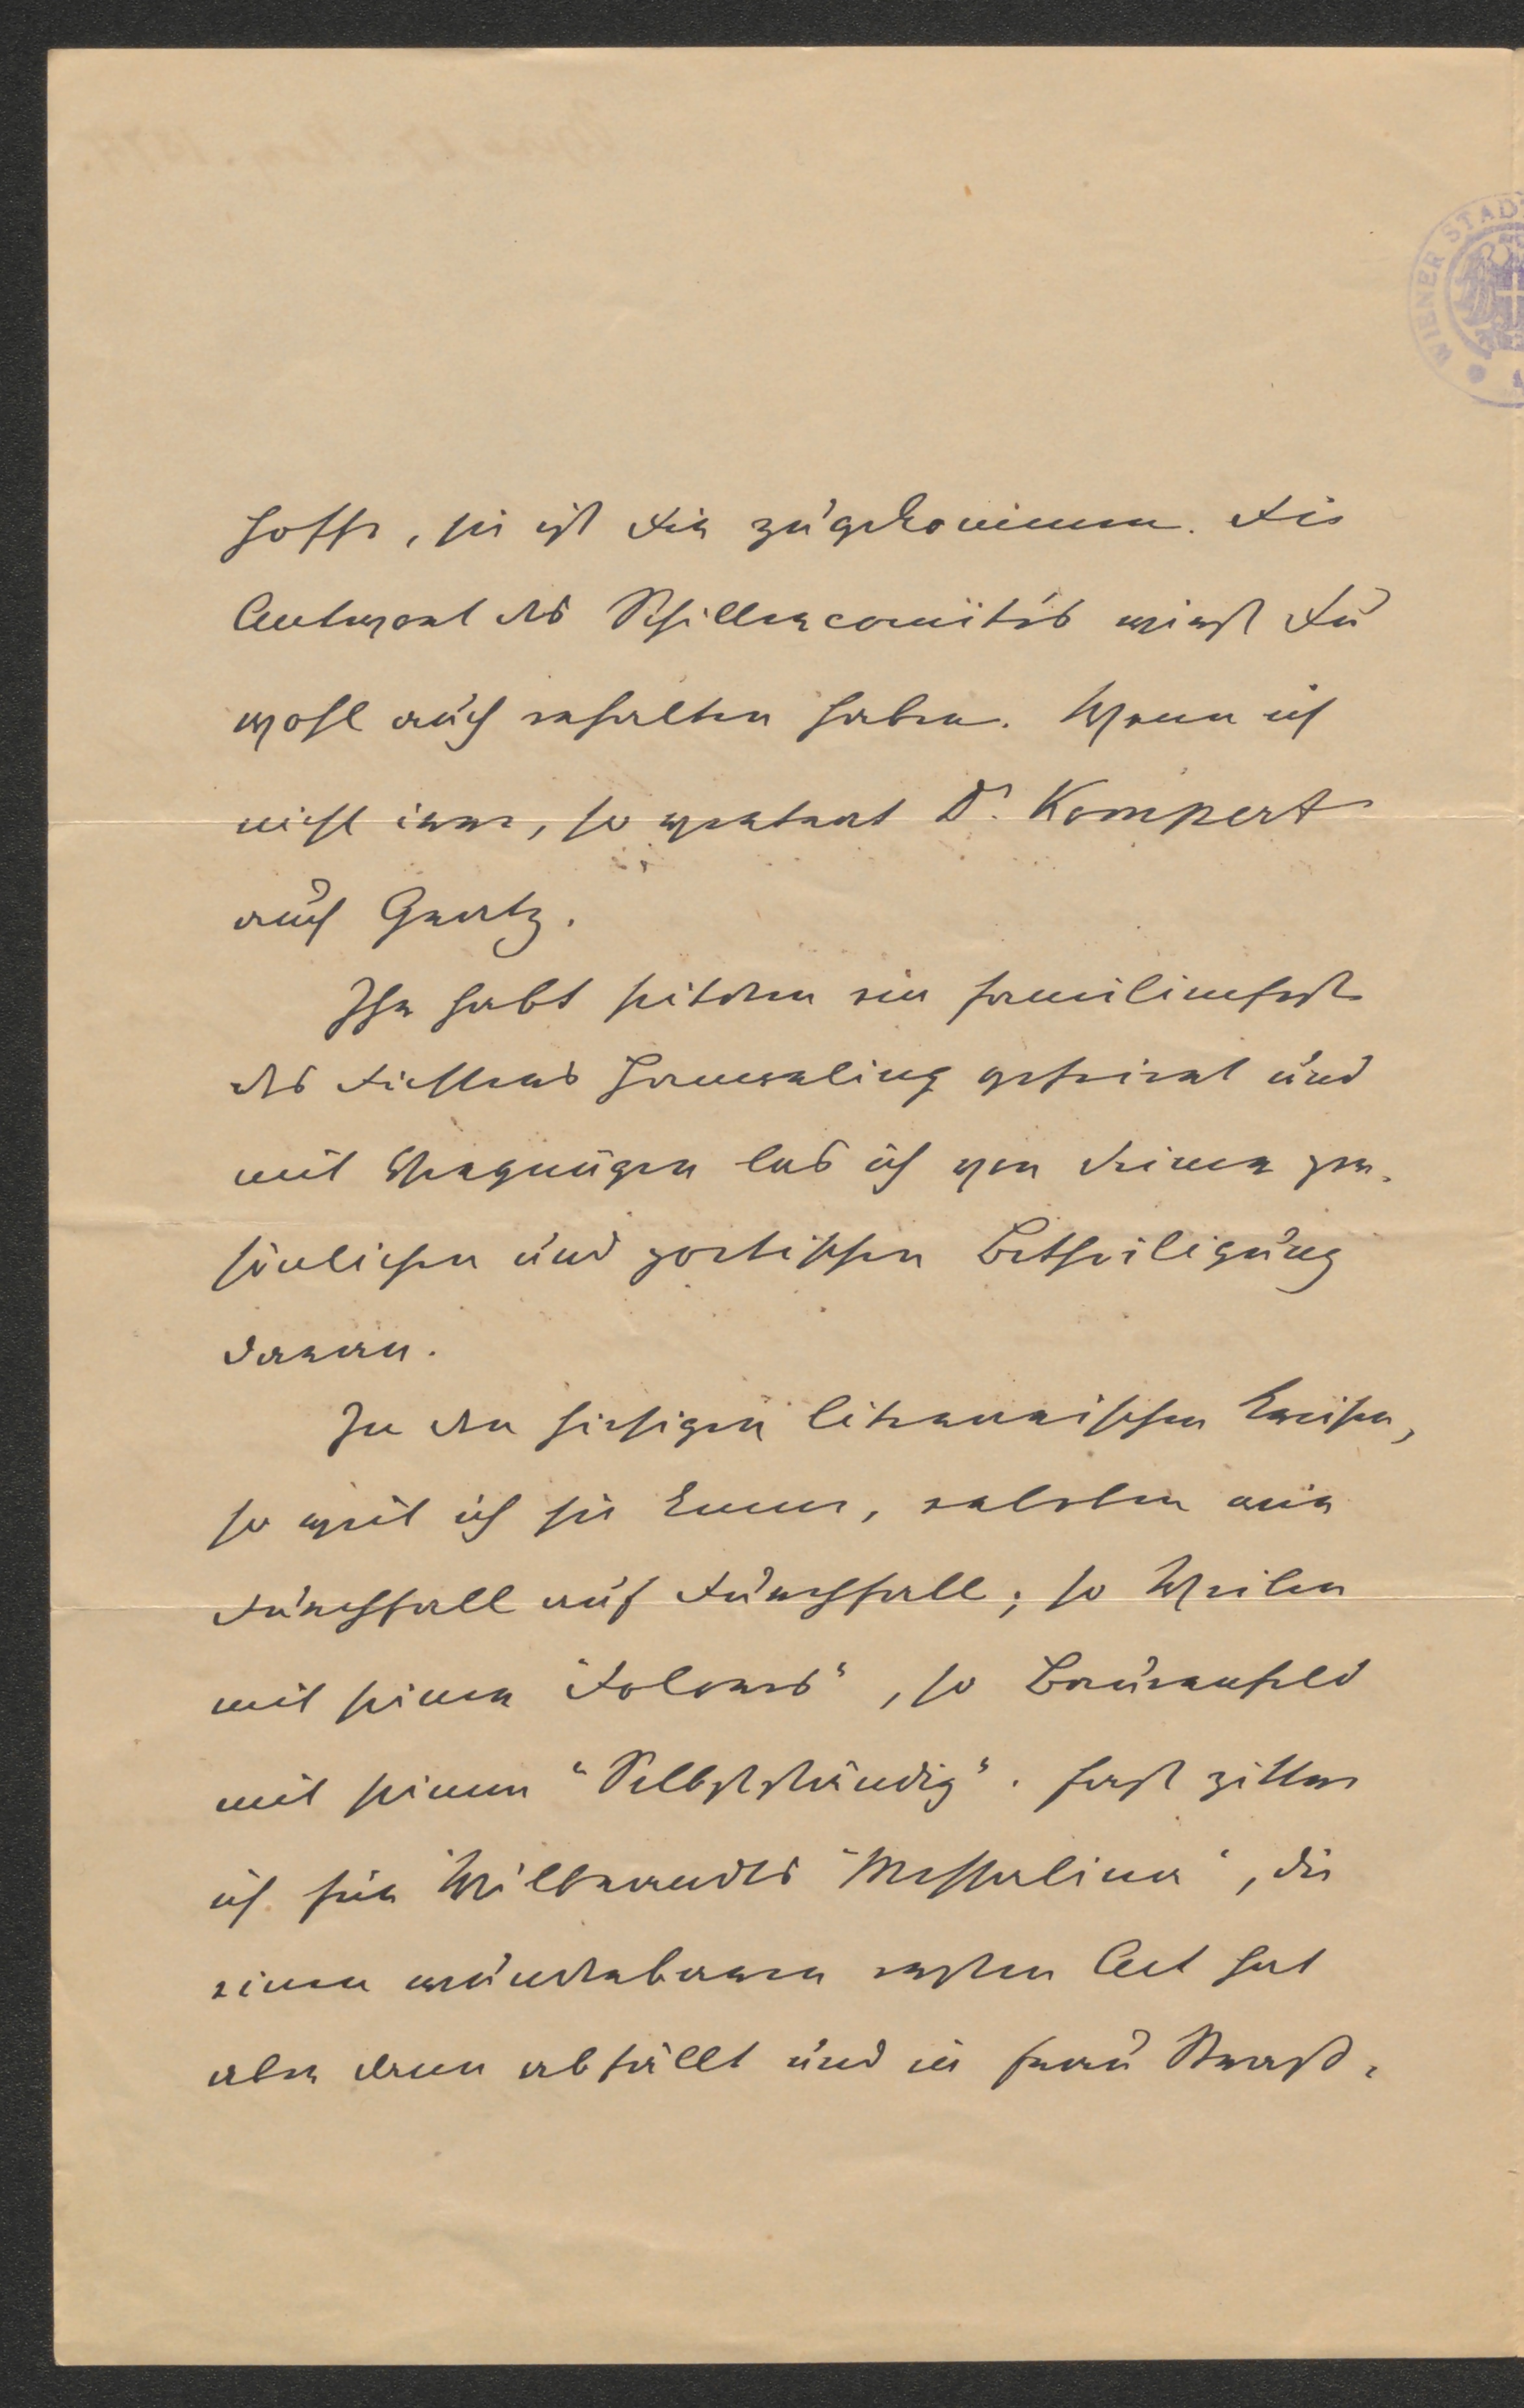 hoffe, sie ist Dir zugekommen. Die
Antwort des Schillercomités wirst Du
wohl auch erhalten haben. Wenn ich
nicht irre, so vertrat Dr. Kompert
auch Graetz.
Ihr habt seitdem ein Familienfest
des Dichters Hamerling gefeiert und
mit Vergnügen las ich von Deiner per-
sönlichen und poetischen Betheiligung
daran.
In den hiesigen literarischen Kreisen,
so weit ich sie kenne, erleben wir
Durchfall auf Durchfall; so Weilen
mit seiner "Dolores", so Bauernfeld
mit seinem "Selbstständig". Fast zittere
ich für Wilbrandts "Messalina", die
einen wunderbaren ersten Act hat
aber dann abfällt und in Frau Straß-
WIENER STAD